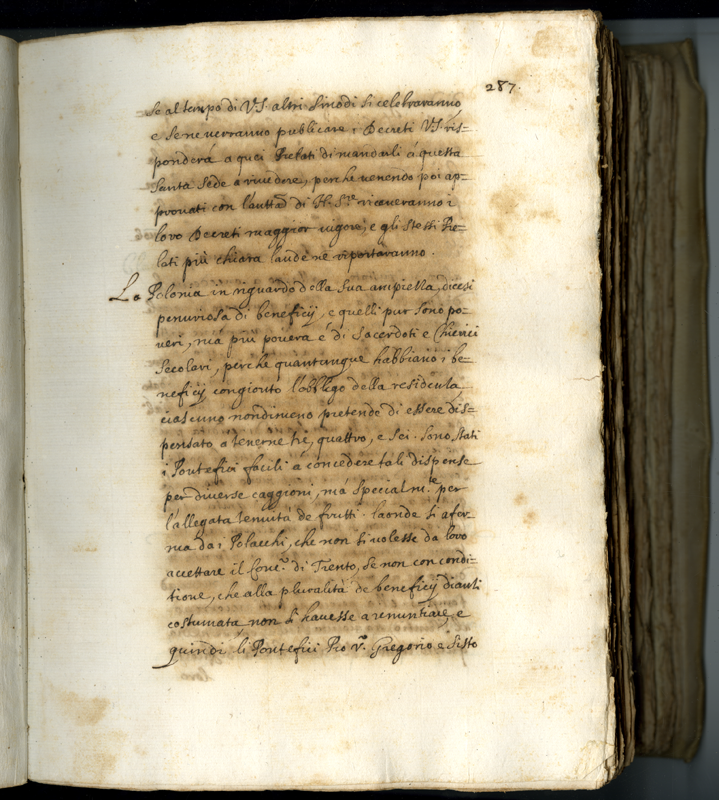 287.
Se al tempo di V.S. altri Sinodi si celebraranno
e se ne verranno publicare i Decreti V.S. ris=
ponderà a quei Prelati di mandarli à questa
Santa Sede a rivedere, perche venendo poi ap=
provati con l'autt.à di N. S.re riceveranno i
loro Decreti maggior vigore, e gli stessi Pre=
lati più chiara laude ne riportaranno.
La Polonia in riguardo della sua ampiezza, dicesi
penuriosa di beneficij, e quelli pur sono po=
veri, mà più povera è di Sacerdoti e Chierici
Secolari, perche quantunque habbiano i be=
neficij congionto l'obbligo della residenza,
ciascuno nondimeno pretende di essere dis=
pensato à tenerne trè, quattro, e sei. Sono stati
i Pontefici facili à concedere tali dispense
per diverse caggioni, mà specialm.te per
l'allegata tenuità de frutti. laonde si afer=
ma da i Polacchi, che non si volesse da loro
accettare il Conc.o di Trento, se non con condi=
tione, che alla pluralità de beneficij dianzi
costumata non si havesse a renuntiare, e
quindi li Pontefici Pio V.o Gregorio e Sisto